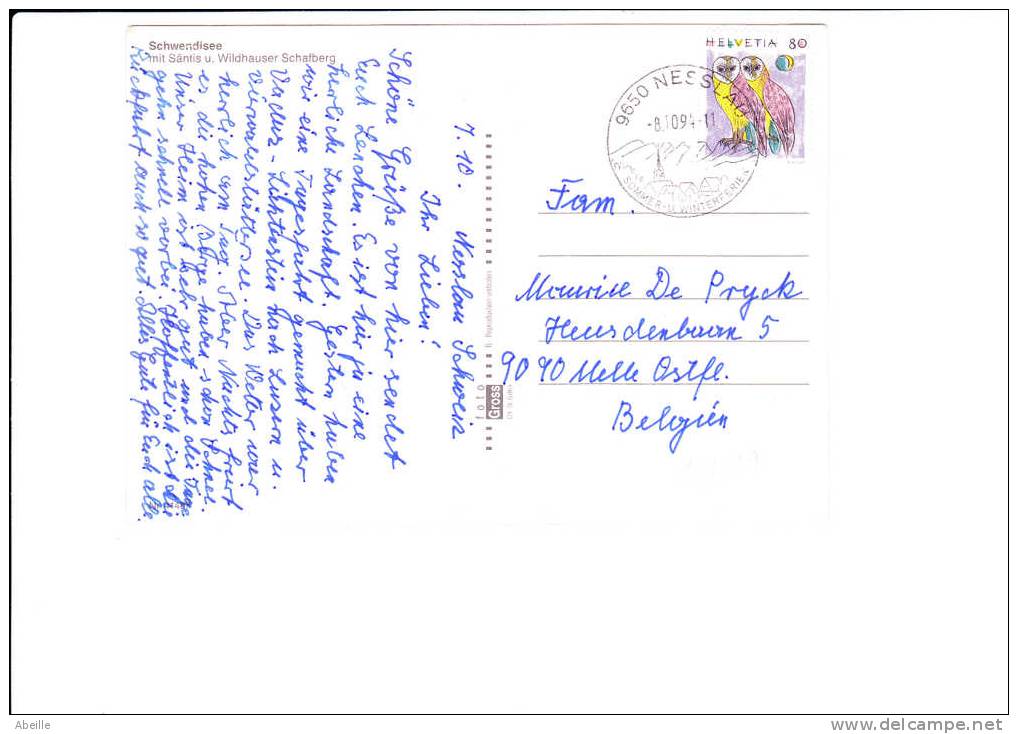 Schwendisee
mit Säntis u. Wildhauser Schafberg
7.10. Nesslau Schweiz
Ihr Lieben!
Schöne Grüße von hier sendet
Euch Lenchen. Es ist hier ja eine
herrliche Landschaft. Gestern haben
wir eine Tagesfahrt gemacht über
Vaduz - Lichtenstein nach Luzern u.
Vierwaldstättersee. Das Wetter war
herlich am Tag. Aber Nachts friert
es die hohen Berge haben schon Schnee.
Unser Heim ist sehr gut und die Tage
gehn schnell vorbei. Hoffentlich ist die
Rückfahrt auch so gut. Alles Gute für Euch alle.
foto
Gross
HELVETIA 80
9650 NESSLAU
-8.10.94-11
SOMMER- U. WINTERFERIEN
Fam.
Maurice De Pryck
Heusdenbaan 5
9090 Melle Ostfl.
Belgién
Abeille
www.delcampe.net